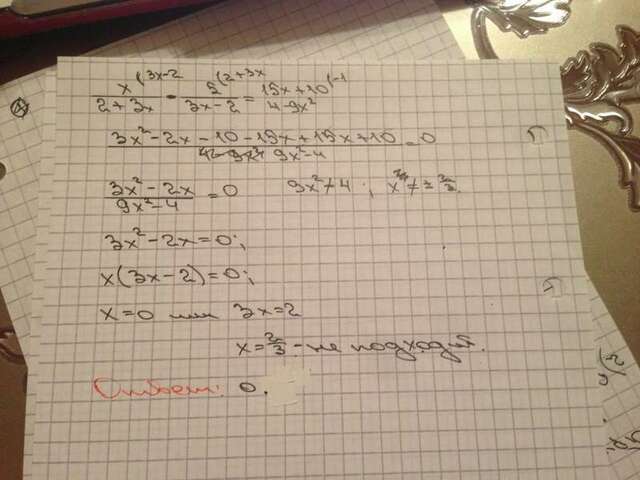 x^(3x-2 / 2+3x - 5^(2+3x / 3x-2 = 15x+10^(-1 / 4-9x²
3x²-2x-10-15x+15x+10 / 9x²-4 = 0
3x²-2x / 9x²-4 = 0 9x²≠4; x≠±2/3.
3x²-2x=0;
x(3x-2)=0;
x=0 или 3x=2
x=2/3 - не подходит.
Ответ: 0.